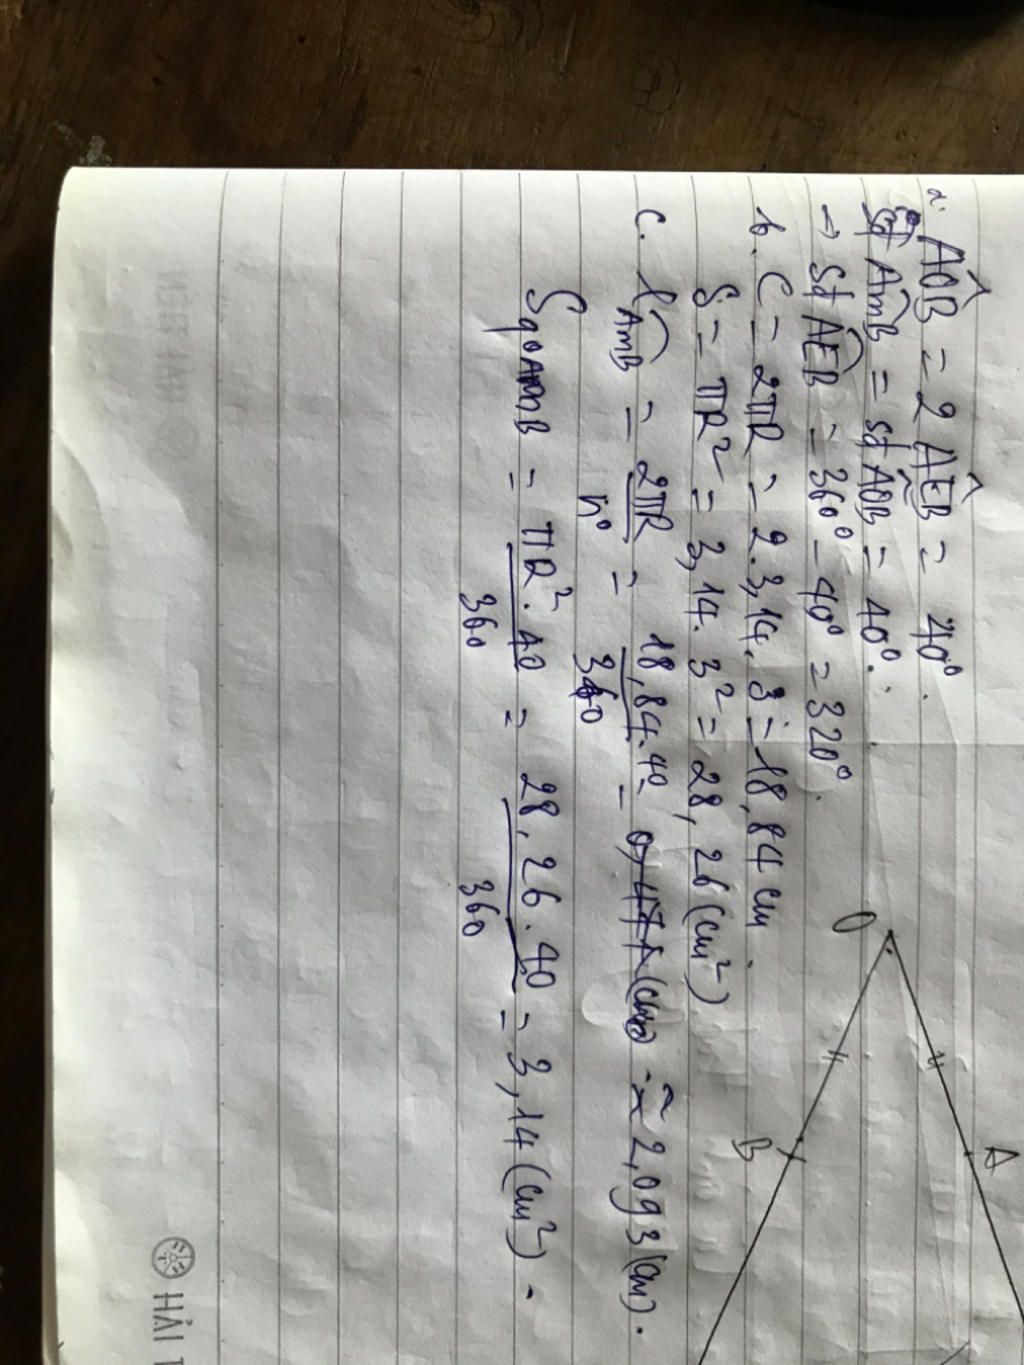 a. AÔB = 2 AÊB = 40°.
sđ AmB = sđ AOB = 40°.
→ sđ AEB = 360° - 40° = 320°.
b. C = 2πR = 2.3,14.3 = 18,84 cm.
S = πR² = 3,14. 3² = 28,26 (cm²)
c. l AmB = 2πR / n° = 18,84.40 / 360 = 0,471 (cm) ≈ 2,093 (cm).
SqOAmB = πR².40 / 360 = 28,26.40 / 360 = 3,14 (cm²).
O
A
B
HẢI T